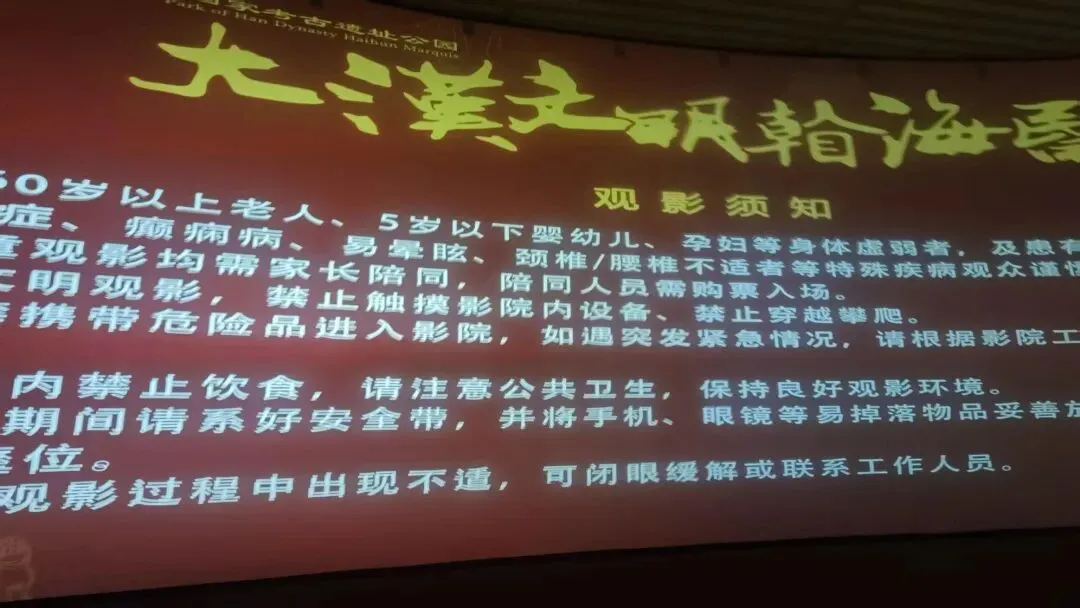 国家考古遗址公园
Park of Han Dynasty Haihun Marquis
大漢文明瀚海昏
观影须知
60岁以上老人、5岁以下婴幼儿、孕妇等身体虚弱者，及患有
症、癫痫病、易晕眩、颈椎/腰椎不适者等特殊疾病观众谨慎
童观影均需家长陪同，陪同人员需购票入场。
文明观影，禁止触摸影院内设备、禁止穿越攀爬。
携带危险品进入影院，如遇突发紧急情况，请根据影院工
内禁止饮食，请注意公共卫生，保持良好观影环境。
期间请系好安全带，并将手机、眼镜等易掉落物品妥善放
座位。
观影过程中出现不适，可闭眼缓解或联系工作人员。